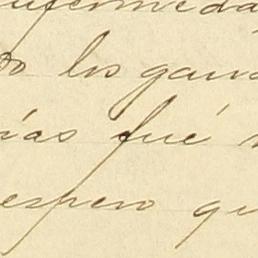 enfermeda
los gana
ías fué
espero qu